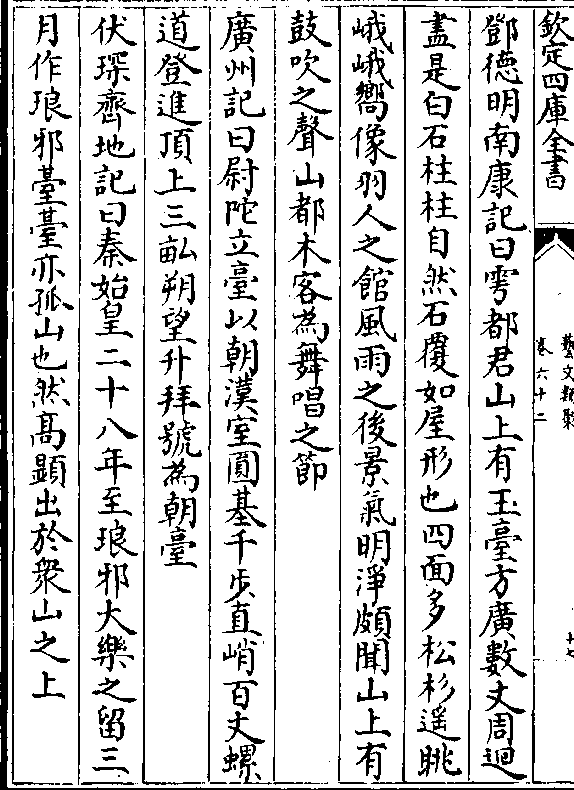 欽定四庫全書
藝文類聚
卷六十二
十七
鄧德明南康記曰雩都君山上有玉臺方廣數丈周迴
盡是白石柱柱自然石覆如屋形也四面多松杉遥眺
峨峨嚮像羽人之館風雨之後景氣明淨頗聞山上有
鼓吹之聲山都木客為舞唱之節
廣州記曰尉陀立臺以朝漢室圓基千步直峭百丈螺
道登進頂上三畝朔望升拜號為朝臺
伏琛齊地記曰秦始皇二十八年至琅邪大樂之留三
月作琅邪臺臺亦孤山也然髙顯出於衆山之上